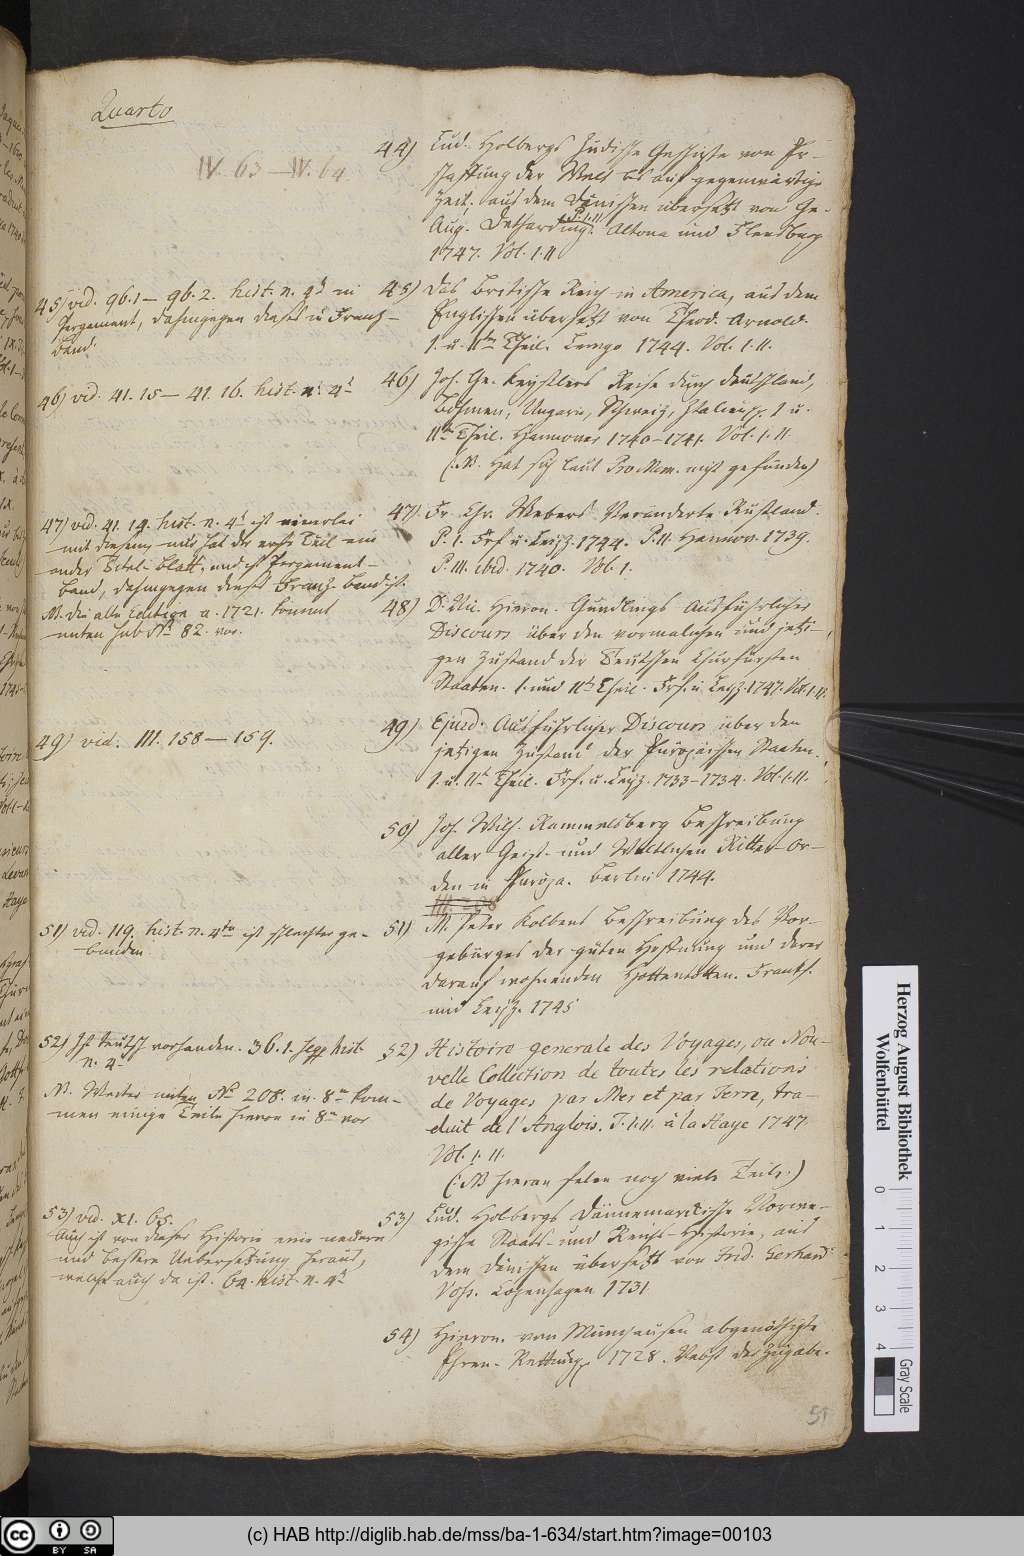 Quarto
IV. 63 — IV. 64
44) Lud. Holbergs Jüdische Geschichte von Er-
schaffung der Welt bis auf gegenwärtige
Zeit. aus dem Dänischen übersetzt von Ge-
Aug. Detharding. P. I. II Altona und Flensburg
1747. Vol. I. II
45) vid. 96. 1 — 96. 2. hist. n. 4t in
Pergement, dahingegen dieses in Franz-
band.
45) das Britische Reich in America, aus dem
Englischen übersetzt von Theod. Arnold.
I. u. IIter Theil. Lemgo 1744. Vol. I. II.
46) vid. 41. 15 — 41. 16. hist. n. 4t
46) Joh. Ge. Keyßlers Reise durch Deutschland,
Böhmen, Ungarn, Schweiz, Italien pp. I u.
IIter Theil. Hannover 1740–1741. Vol. I. II.
(: NB. Hat sich laut Pro Mem. nicht gefunden)
47) vid. 41. 14. hist. n. 4t ist einerlei
mit diesem, nur hat der erste Teil ein
ander Titel-Blatt, und ist Pergement-
Band, dahingegen dieses Franz-Band ist.
NB. die alte Edition a. 1721. kommt
unten sub No 82. vor.
47) Fr. Chr. Webers Verändertes Rußland.
P. I. Frf. u. Leipz. 1744. P. II. Hannov. 1739.
P. III. ibid. 1740. Vol. I.
48) D. Nic. Hieron. Gundlings Ausführlicher
Discours über den vormaligen und jetzi-
gen Zustand der Teutschen Churfürsten
Staaten. I. und IIter Theil. Frf. u. Leipz. 1747. Vol. I. II.
49) vid. III. 158 — 159.
49) Ejusd. Ausführlicher Discours über den
jetzigen Zustand der Europäischen Staaten.
I. u. IIt Theil. Frf. u. Leipz. 1733–1734. Vol. I. II.
50) Joh. Wilh. Rammelsberg Beschreibung
aller Geist- und Weltlichen Ritter-Or-
den in Europa. Berlin 1744.
51) vid. 119. hist. n. 4to ist schlechter ge-
bunden.
51) M. Peter Kolbens Beschreibung des Vor-
gebürges der guten Hoffnung und derer
darauf wohnenden Hottentotten. Frankf.
und Leipz. 1745
52) Ist teutsch vorhanden. 36. 1. seqq hist.
n. 4
NB. Weiter unten No 208. in 8vo kom-
men einige Teile hievon in 8vo vor
52) Histoire generale des Voyages, ou Nou-
velle Collection de toutes les relations
de Voyages par Mer et par Terre, tra-
duit de l'Anglois. T. I. II. à la Haye 1747.
Vol. I. II.
(: NB hievon felen noch viele Teile.)
53) vid. XI. 65.
Auch ist von dieser Historie eine neuere
und bessere Uebersetzung heraus,
welche auch da ist. 64. hist. n. 4t
53) Lud. Holbergs Dännemarckische Norwe-
gische Staats- und Reichs-Historie, aus
dem Dänischen übersetzt von Frid. Gerhard
Voss. Copenhagen 1731
54) Hieron. von Münchausen abgenöthigte
Ehren-Rettung 1728. Nebst der Zugabe.
51
Herzog August Bibliothek
Wolfenbüttel
0 1 2 3 4
Gray Scale
cc BY SA
(c) HAB http://diglib.hab.de/mss/ba-1-634/start.htm?image=00103